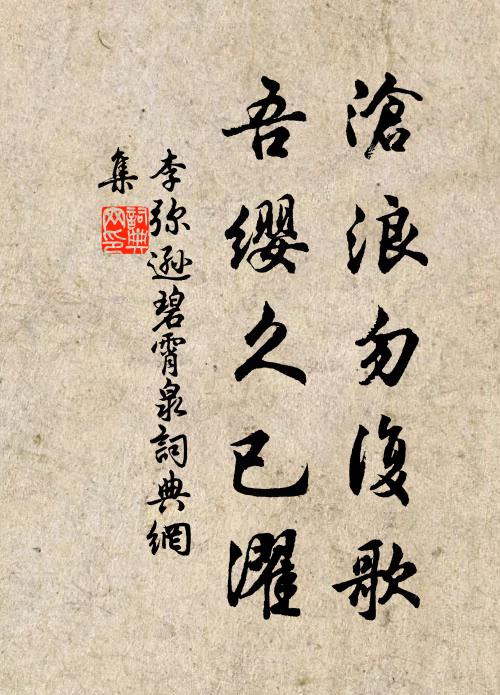 滄浪勿復歌
吾纓久已濯
李弥遜碧霄泉詞典網
集
詞典
网印